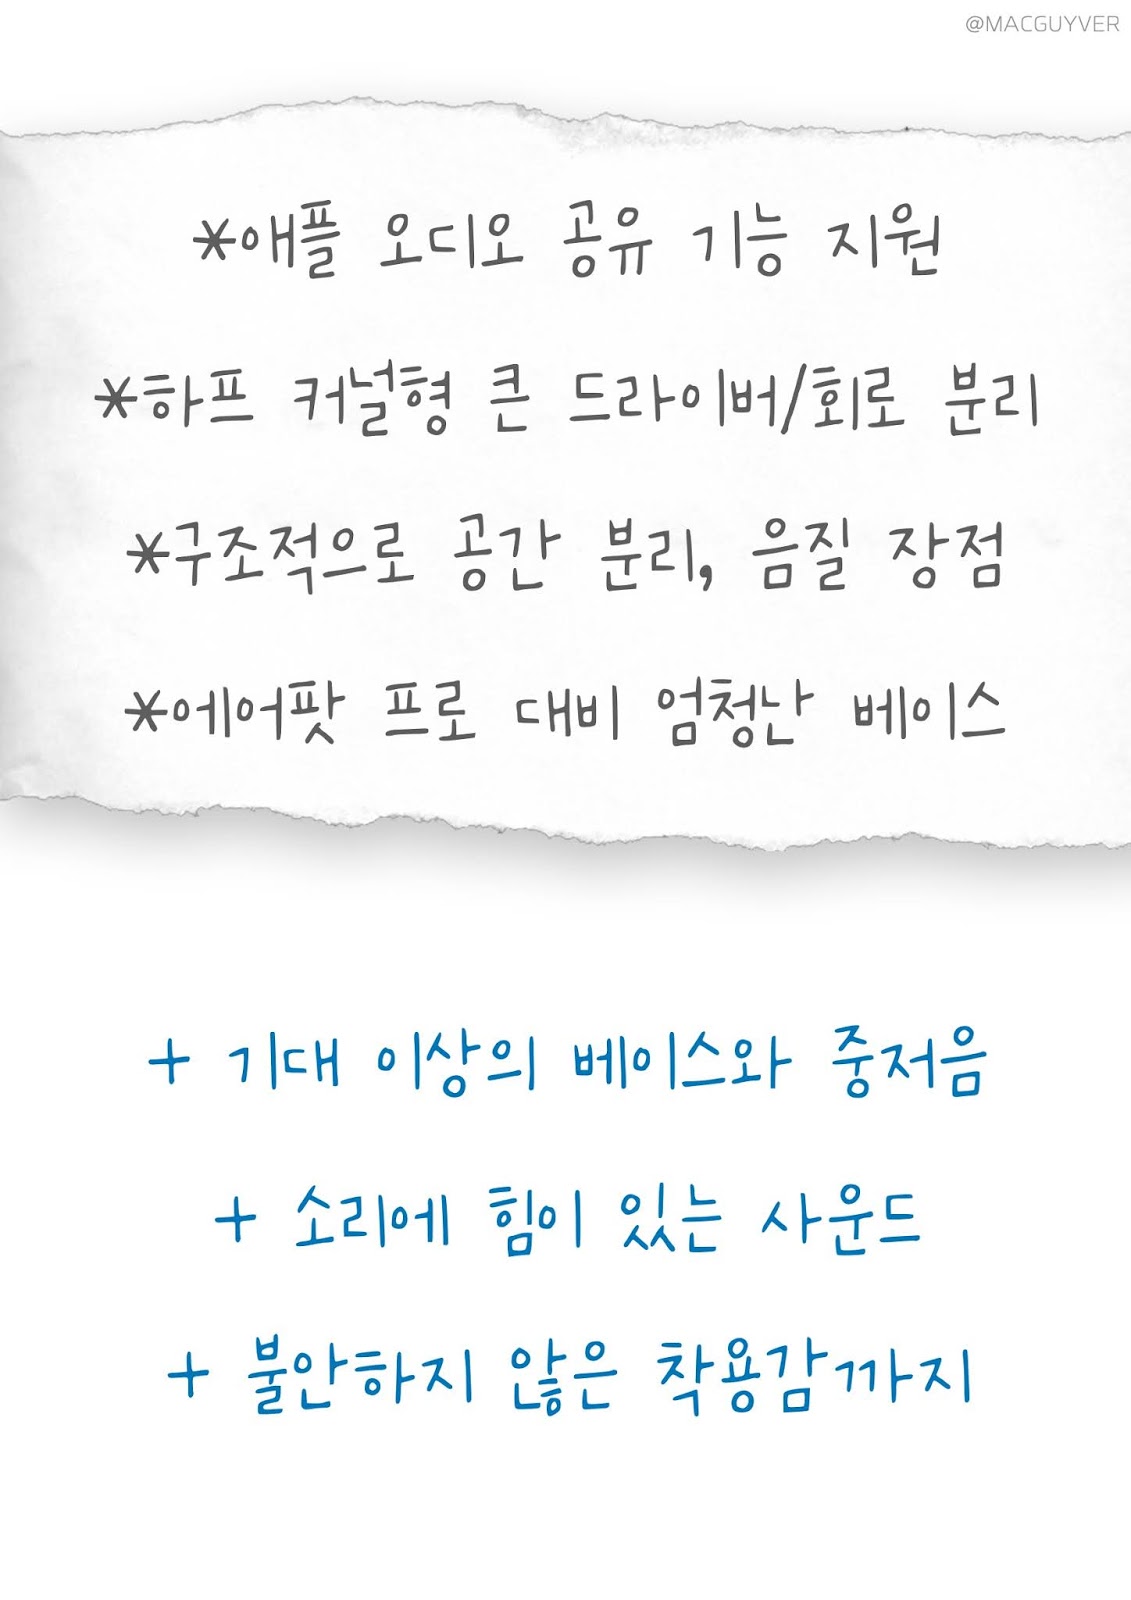 @MACGUYVER
*애플 오디오 공유 기능 지원
*하프 커널형 큰 드라이버/회로 분리
*구조적으로 공간 분리, 음질 장점
*에어팟 프로 대비 엄청난 베이스
+ 기대 이상의 베이스와 중저음
+ 소리에 힘이 있는 사운드
+ 불안하지 않은 착용감까지